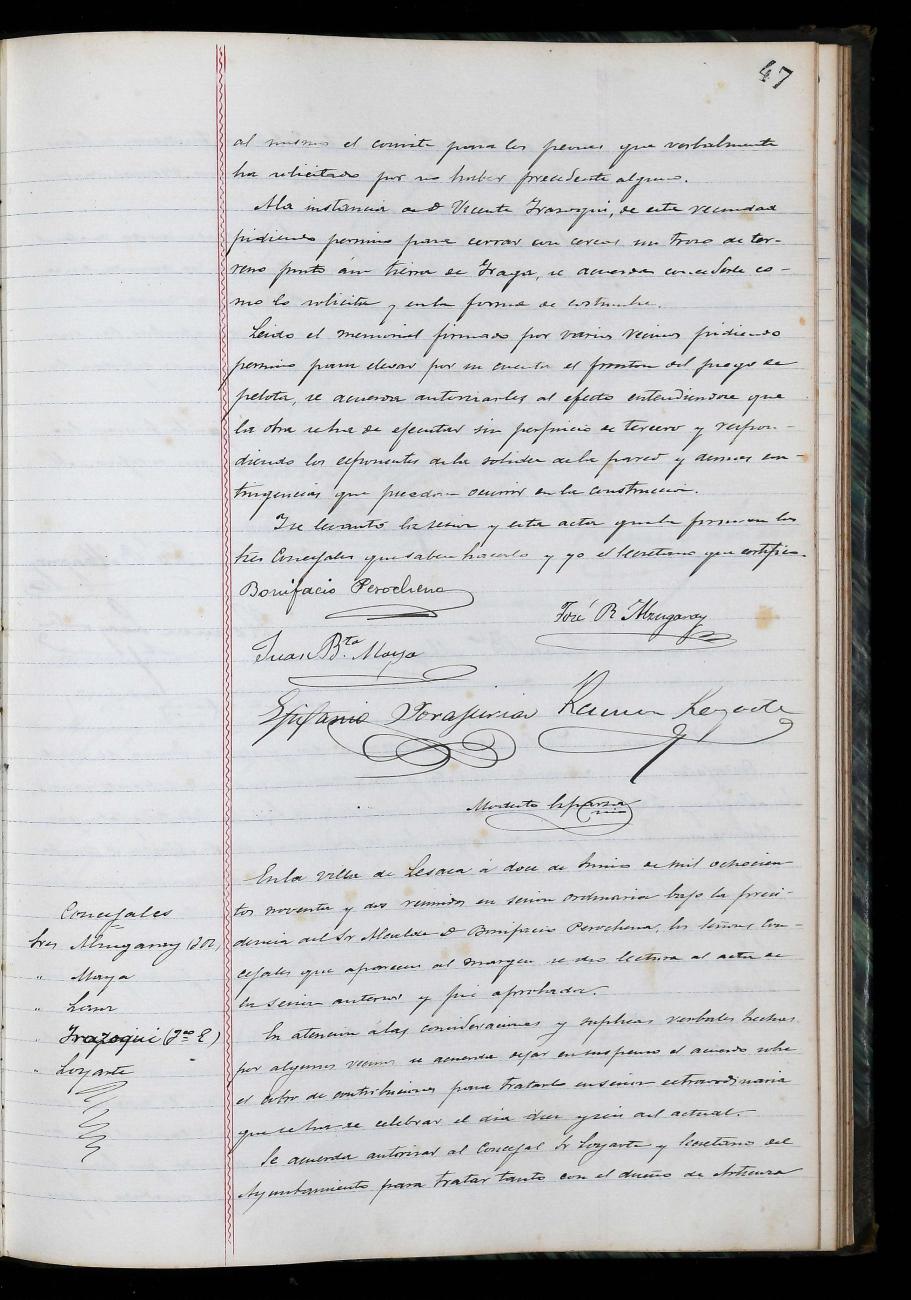 47
al mismo el convite para los peones que verbalmente
ha solicitado por no haber precedente alguno.
A la instancia de D Vicente Irazoqui, de esta vecindad
pidiendo permiso para cerrar con cercas un trozo de ter-
reno junto á su tierra de Fraga, se acuerda concederle co-
mo lo solicita y en la forma de costumbre.
Leido el memorial firmado por varios vecinos pidiendo
permiso para elevar por su cuenta el fronton del juego de
pelota, se acuerda autorizarles al efecto entendiendose que
la obra se ha de ejecutar sin perjuicio de tercero y respon-
diendo los esponentes de la solidez de la pared y demas con-
tingencias que puedan ocurrir en la construccion.
Y se levantó la sesion y esta acta que la firman los
Sres Concejales que saben hacerlo y yo el Secretario que certifico.
Bonifacio Perochena
José R Alzugaray
Juan Bta. Maya
Estefanio Torajuria Ramon Loyarte
Modesto Esparza
En la villa de Lesaca á doce de Junio de mil ochocien
tos noventa y dos reunidos en sesion ordinaria bajo la presi-
dencia del Sr Alcalde D Bonifacio Perochena, los señores Con-
cejales que aparecen al margen se dio lectura al acta de
la sesion anterior y fué aprobada.
Concejales
Sres Alzugaray (José,
" Maya
"
" Irazoqui (Jno E)
" Loyarte
En atencion á las consideraciones y suplicas verbales hechas
por algunos vecinos se acuerda dejar en suspenso el acuerdo sobre
el cobro de contribuciones para tratarlo en sesion extraordinaria
que se ha de celebrar el dia diez y seis del actual.
Se acuerda autorizar al Concejal Sr Loyarte y Secretario del
Ayuntamiento para tratar tanto con el dueño de